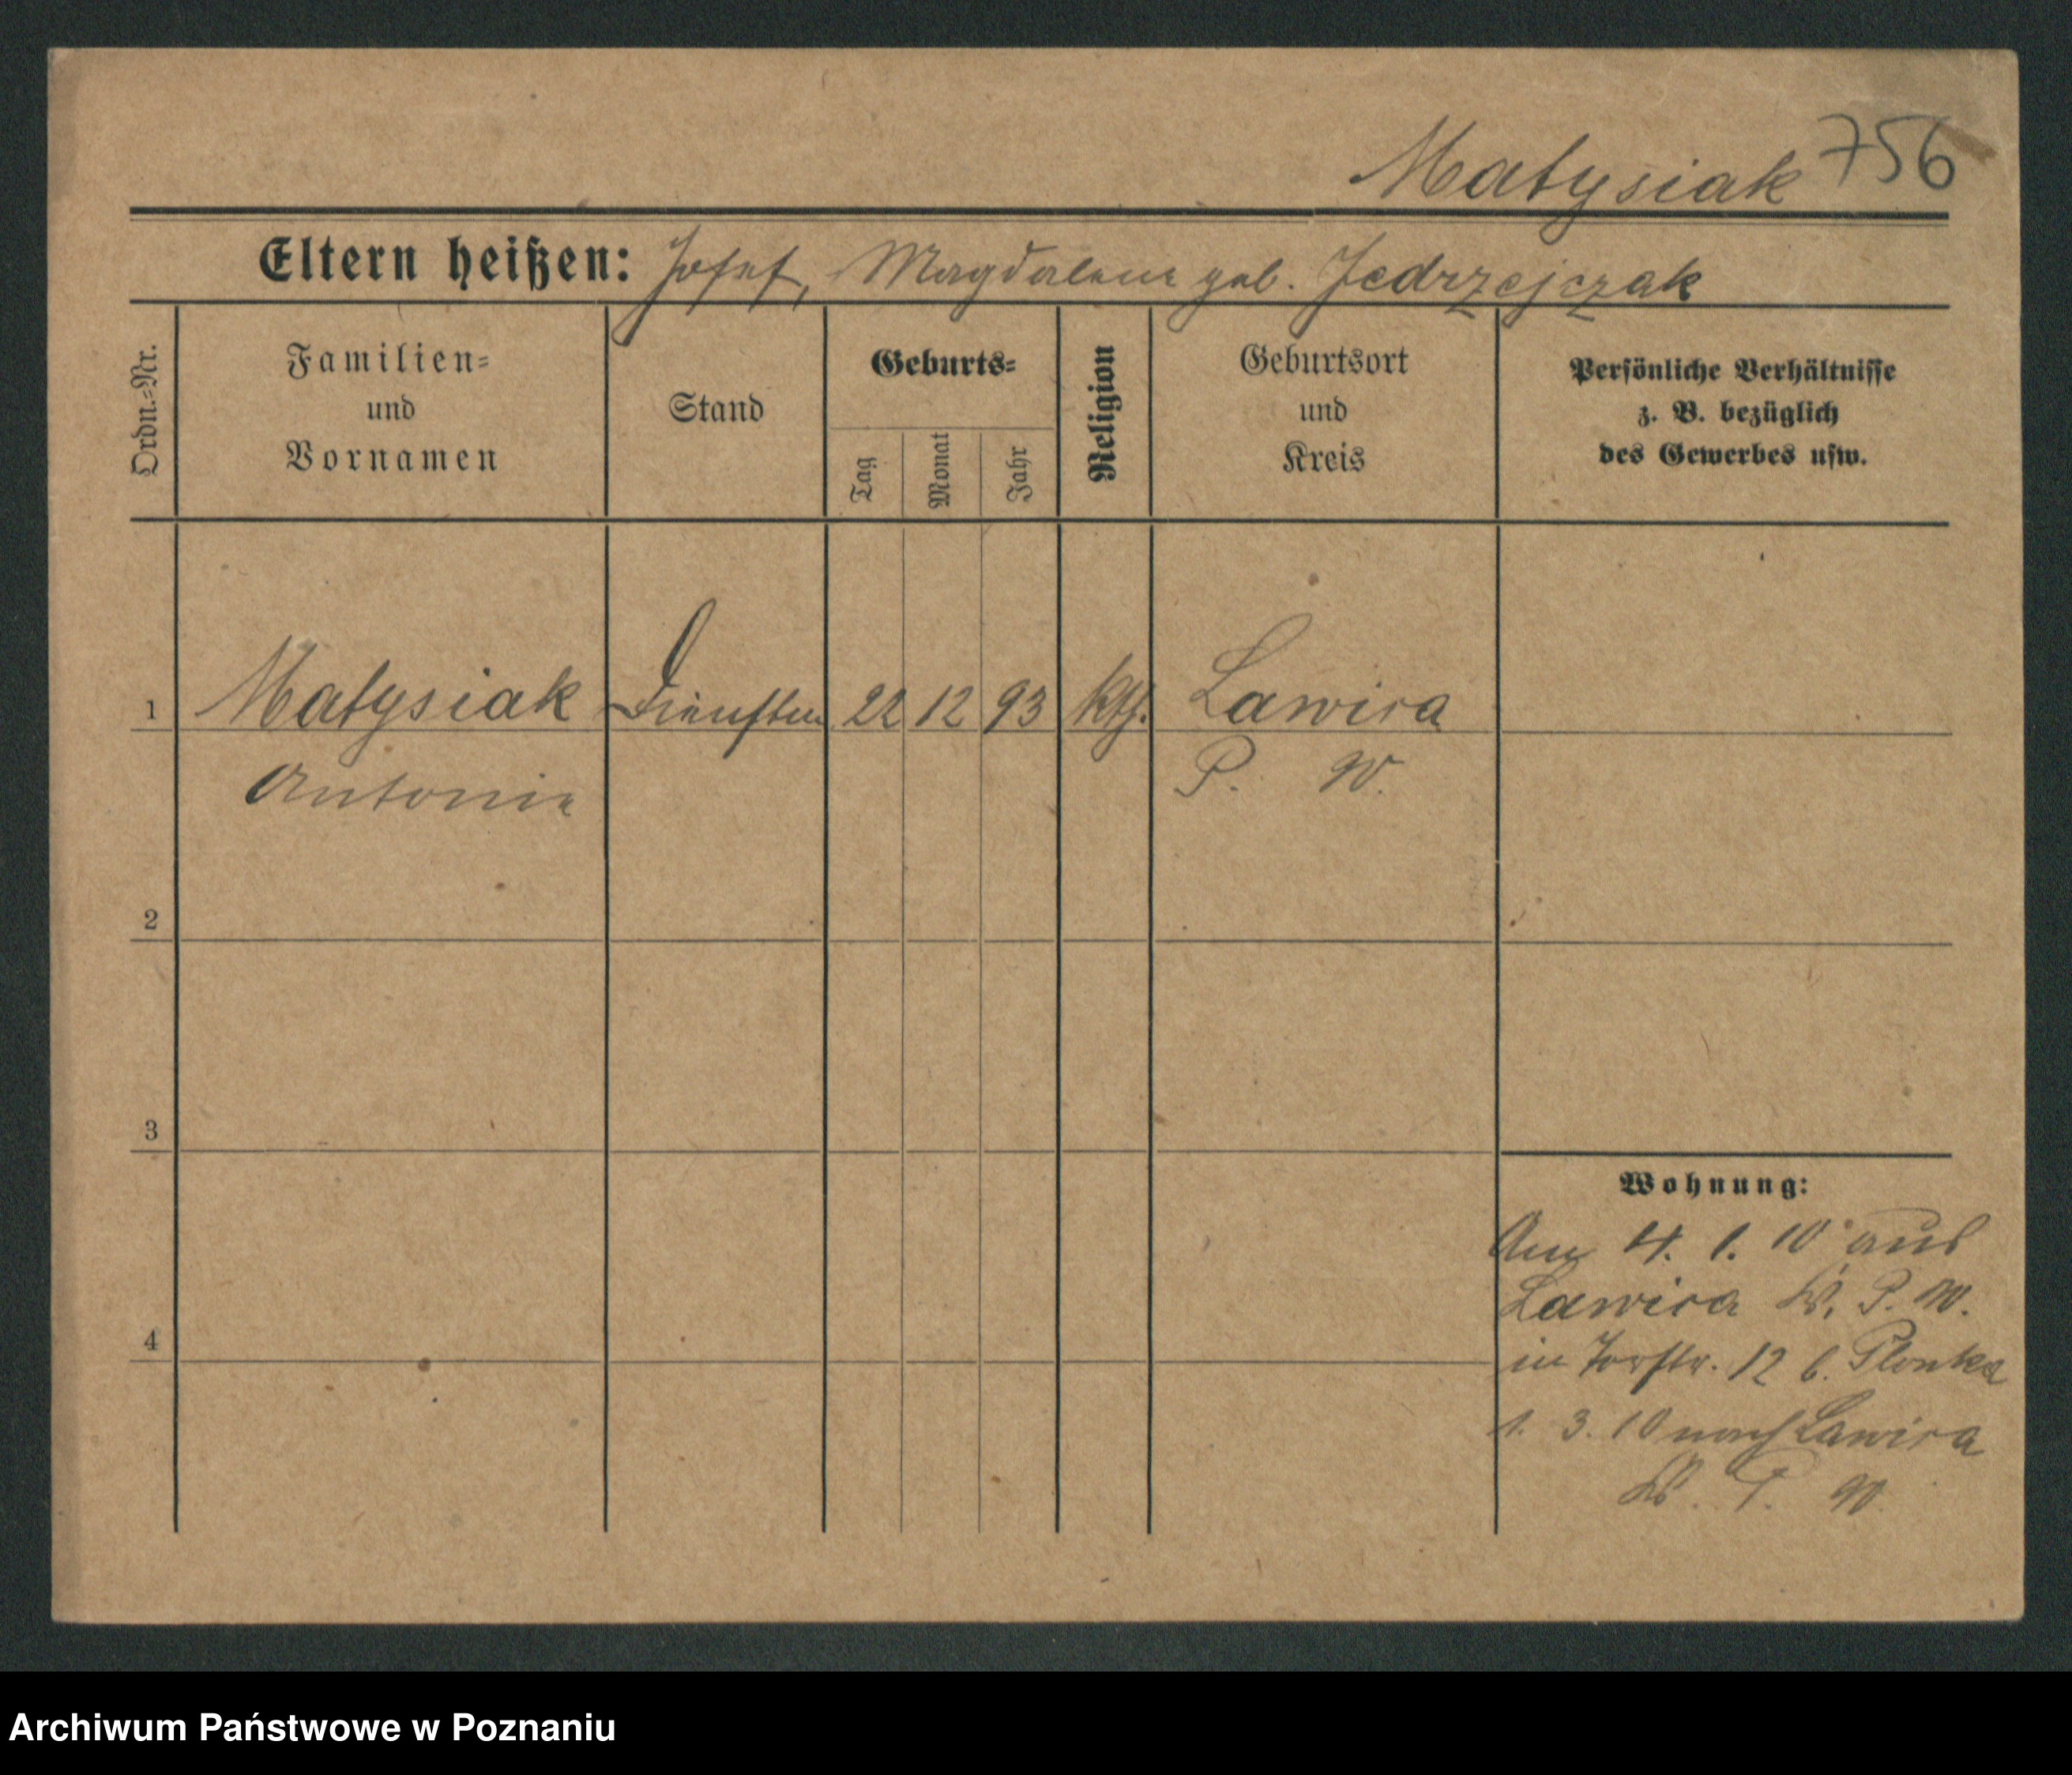 Matysiak 756
Eltern heißen: Josef, Magdalena geb. Jedrzejczak
Ordn.-Nr.
Familien-
und
Vornamen
Stand
Geburts-
Tag
Monat
Jahr
Religion
Geburtsort
und
Kreis
Persönliche Verhältnisse
z. B. bezüglich
des Gewerbes usw.
1 Matysiak 22 12 93 kth. Lawica
Antonie P. W.
2
3
4
Wohnung:
Am 4. 1. 10 aus
Lawica K. P. W.
in Torstr. 12 b. Plonka
1. 3. 10 nach Lawica
K. P. W.
Archiwum Państwowe w Poznaniu